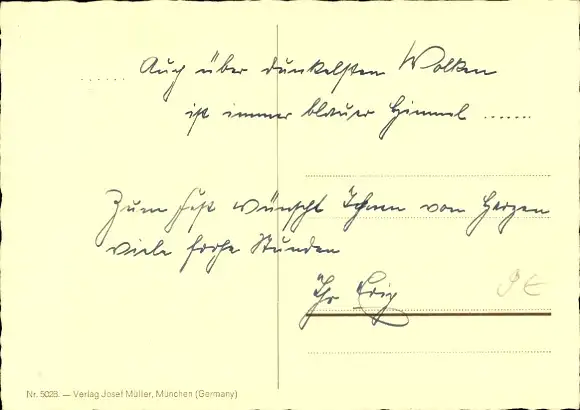 ...... Auch über dunkelsten Wolken
ist immer blauer Himmel .......
Zum Fest wünscht Ihnen von Herzen
viele frohe Stunden
Ihr Erich
9 €
Nr. 5028. — Verlag Josef Müller, München (Germany)